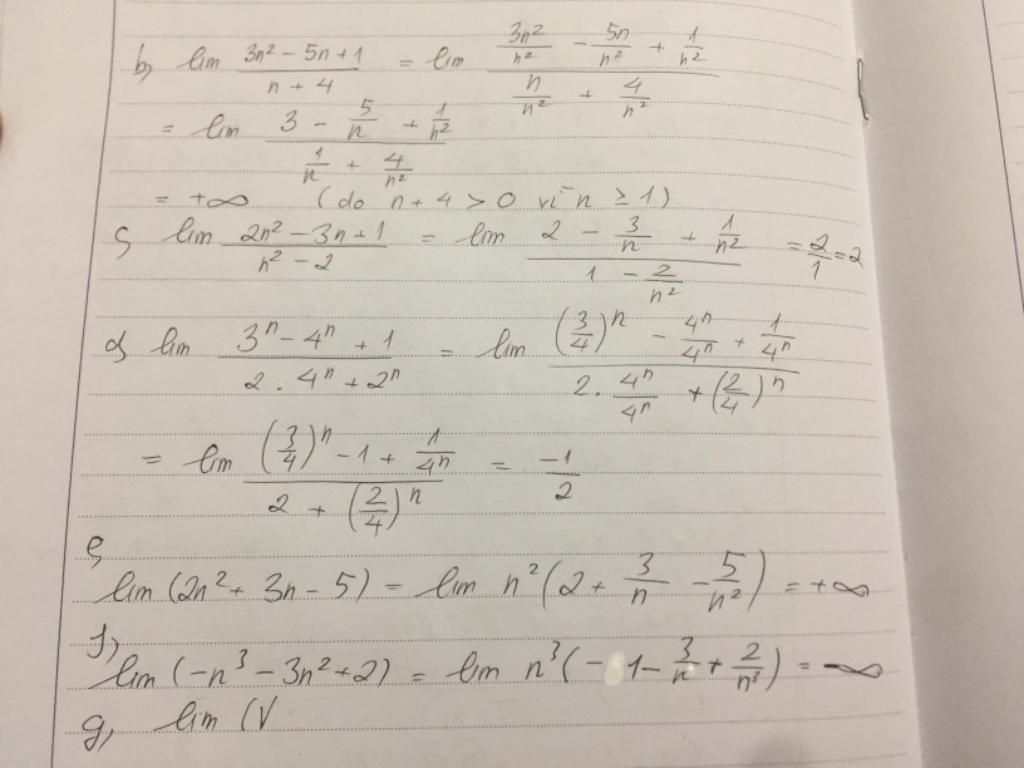 b, lim (3n² - 5n + 1)/(n + 4) = lim (3n²/n² - 5n/n² + 1/n²)/(n/n² + 4/n²)
= lim (3 - 5/n + 1/n²)/(1/n + 4/n²)
= +∞ (do n + 4 > 0 vì n ≥ 1)
c, lim (2n² - 3n + 1)/(n² - 2) = lim (2 - 3/n + 1/n²)/(1 - 2/n²) = 2/1 = 2
d, lim (3ⁿ - 4ⁿ + 1)/(2 . 4ⁿ + 2ⁿ) = lim ((3/4)ⁿ - 4ⁿ/4ⁿ + 1/4ⁿ)/(2 . 4ⁿ/4ⁿ + (2/4)ⁿ)
= lim ((3/4)ⁿ - 1 + 1/4ⁿ)/(2 + (2/4)ⁿ) = -1/2
e,
lim (2n² + 3n - 5) = lim n²(2 + 3/n - 5/n²) = +∞
f,
lim (-n³ - 3n² + 2) = lim n³(- 1 - 3/n + 2/n³) = -∞
g, lim (√